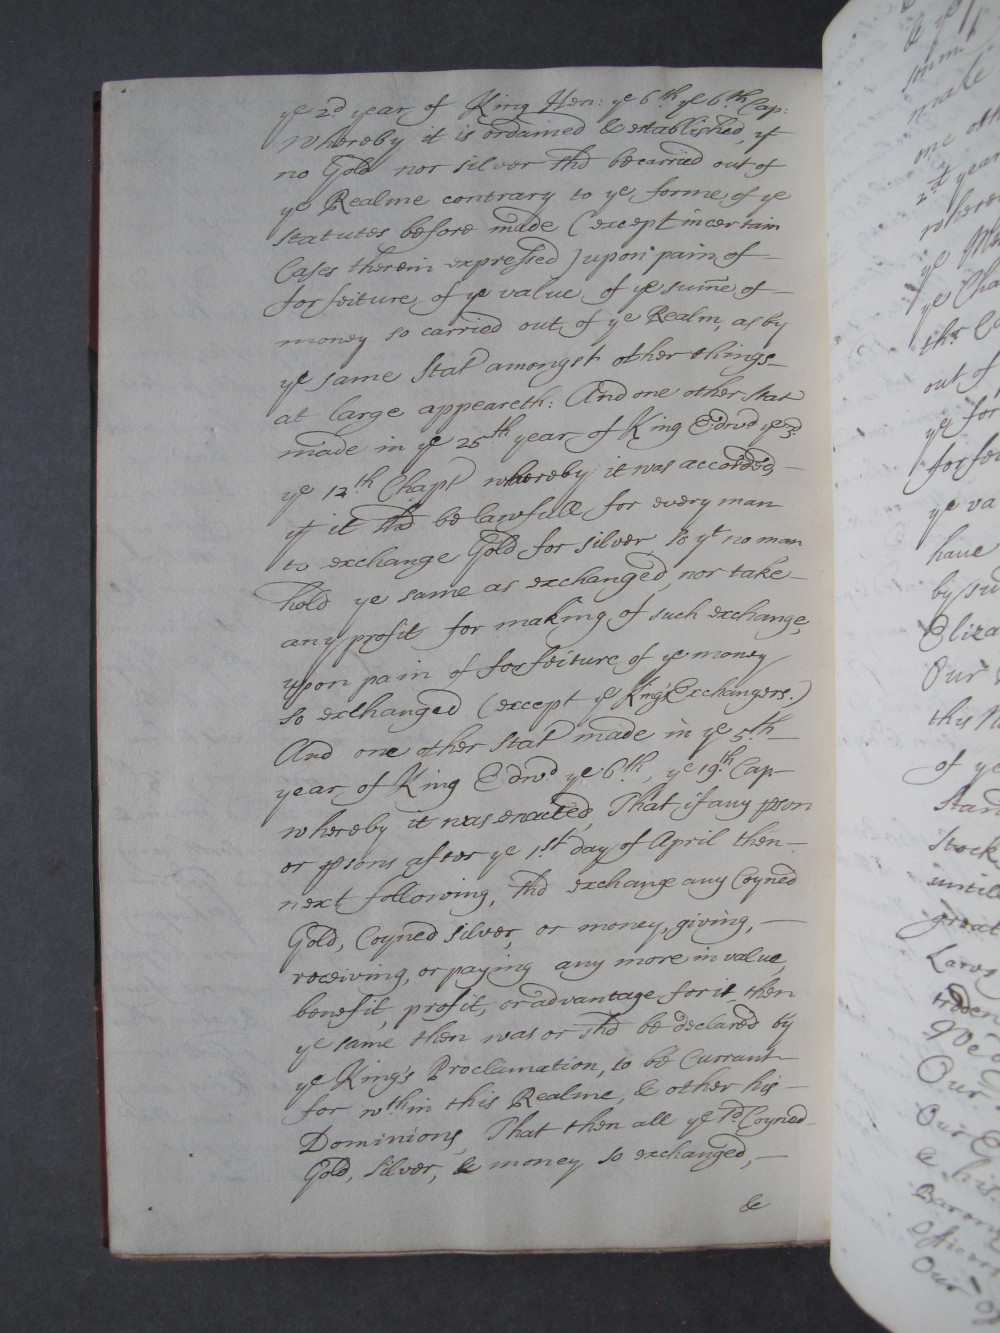 ye 2d year of King Hen: ye 6th ye 6th Cap:
Whereby it is ordained & established, yt
no Gold nor silver shd be carried out of
ye Realme contrary to ye forme of ye
statutes before made (except in certain
Cases therein expressed) upon pain of
forfeiture of ye value of ye sum̄e of
money so carried out of ye Realm, as by
ye same Stat amongst other things
at large appeareth: And one other Stat
made in ye 25th year of King Edwd ye 3d:
ye 12th Chapt whereby it was accorded,
yt it shd be lawfull for every man
to exchange Gold for silver, so yt no man
hold ye same as exchanged, nor take
any profit for making of such exchange,
upon pain of forfeiture of ye money
so exchanged (except ye King's Exchangers.)
And one other Stat made in ye 5th
year of King Edwd ye 6th, ye 19th Cap
whereby it was enacted, That if any pson
or psons after ye 1st day of April then
next following, shd exchange any Coyned
Gold, Coyned silver, or money, giving,
receiving, or paying any more in value,
benefit, profit, or advantage for it then
ye same then was or shd be declared by
ye King's Proclamation, to be Currant
for wthin this Realme, & other his
Dominions, That then all ye sd Coyned
Gold, silver, & money so exchanged,
&
& ye
summ
make
one oth
2d year
where
ye
ye Cha
out of
ye for
forfei
ye va
have
by su
Eliza
Our
this
of ye
Stan
Stock
untill
great
Our
Our
& his
Baron
Officers
Our